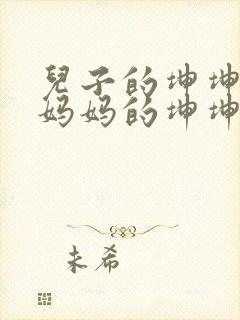 兒子的坤坤
妈妈的坤坤
未希